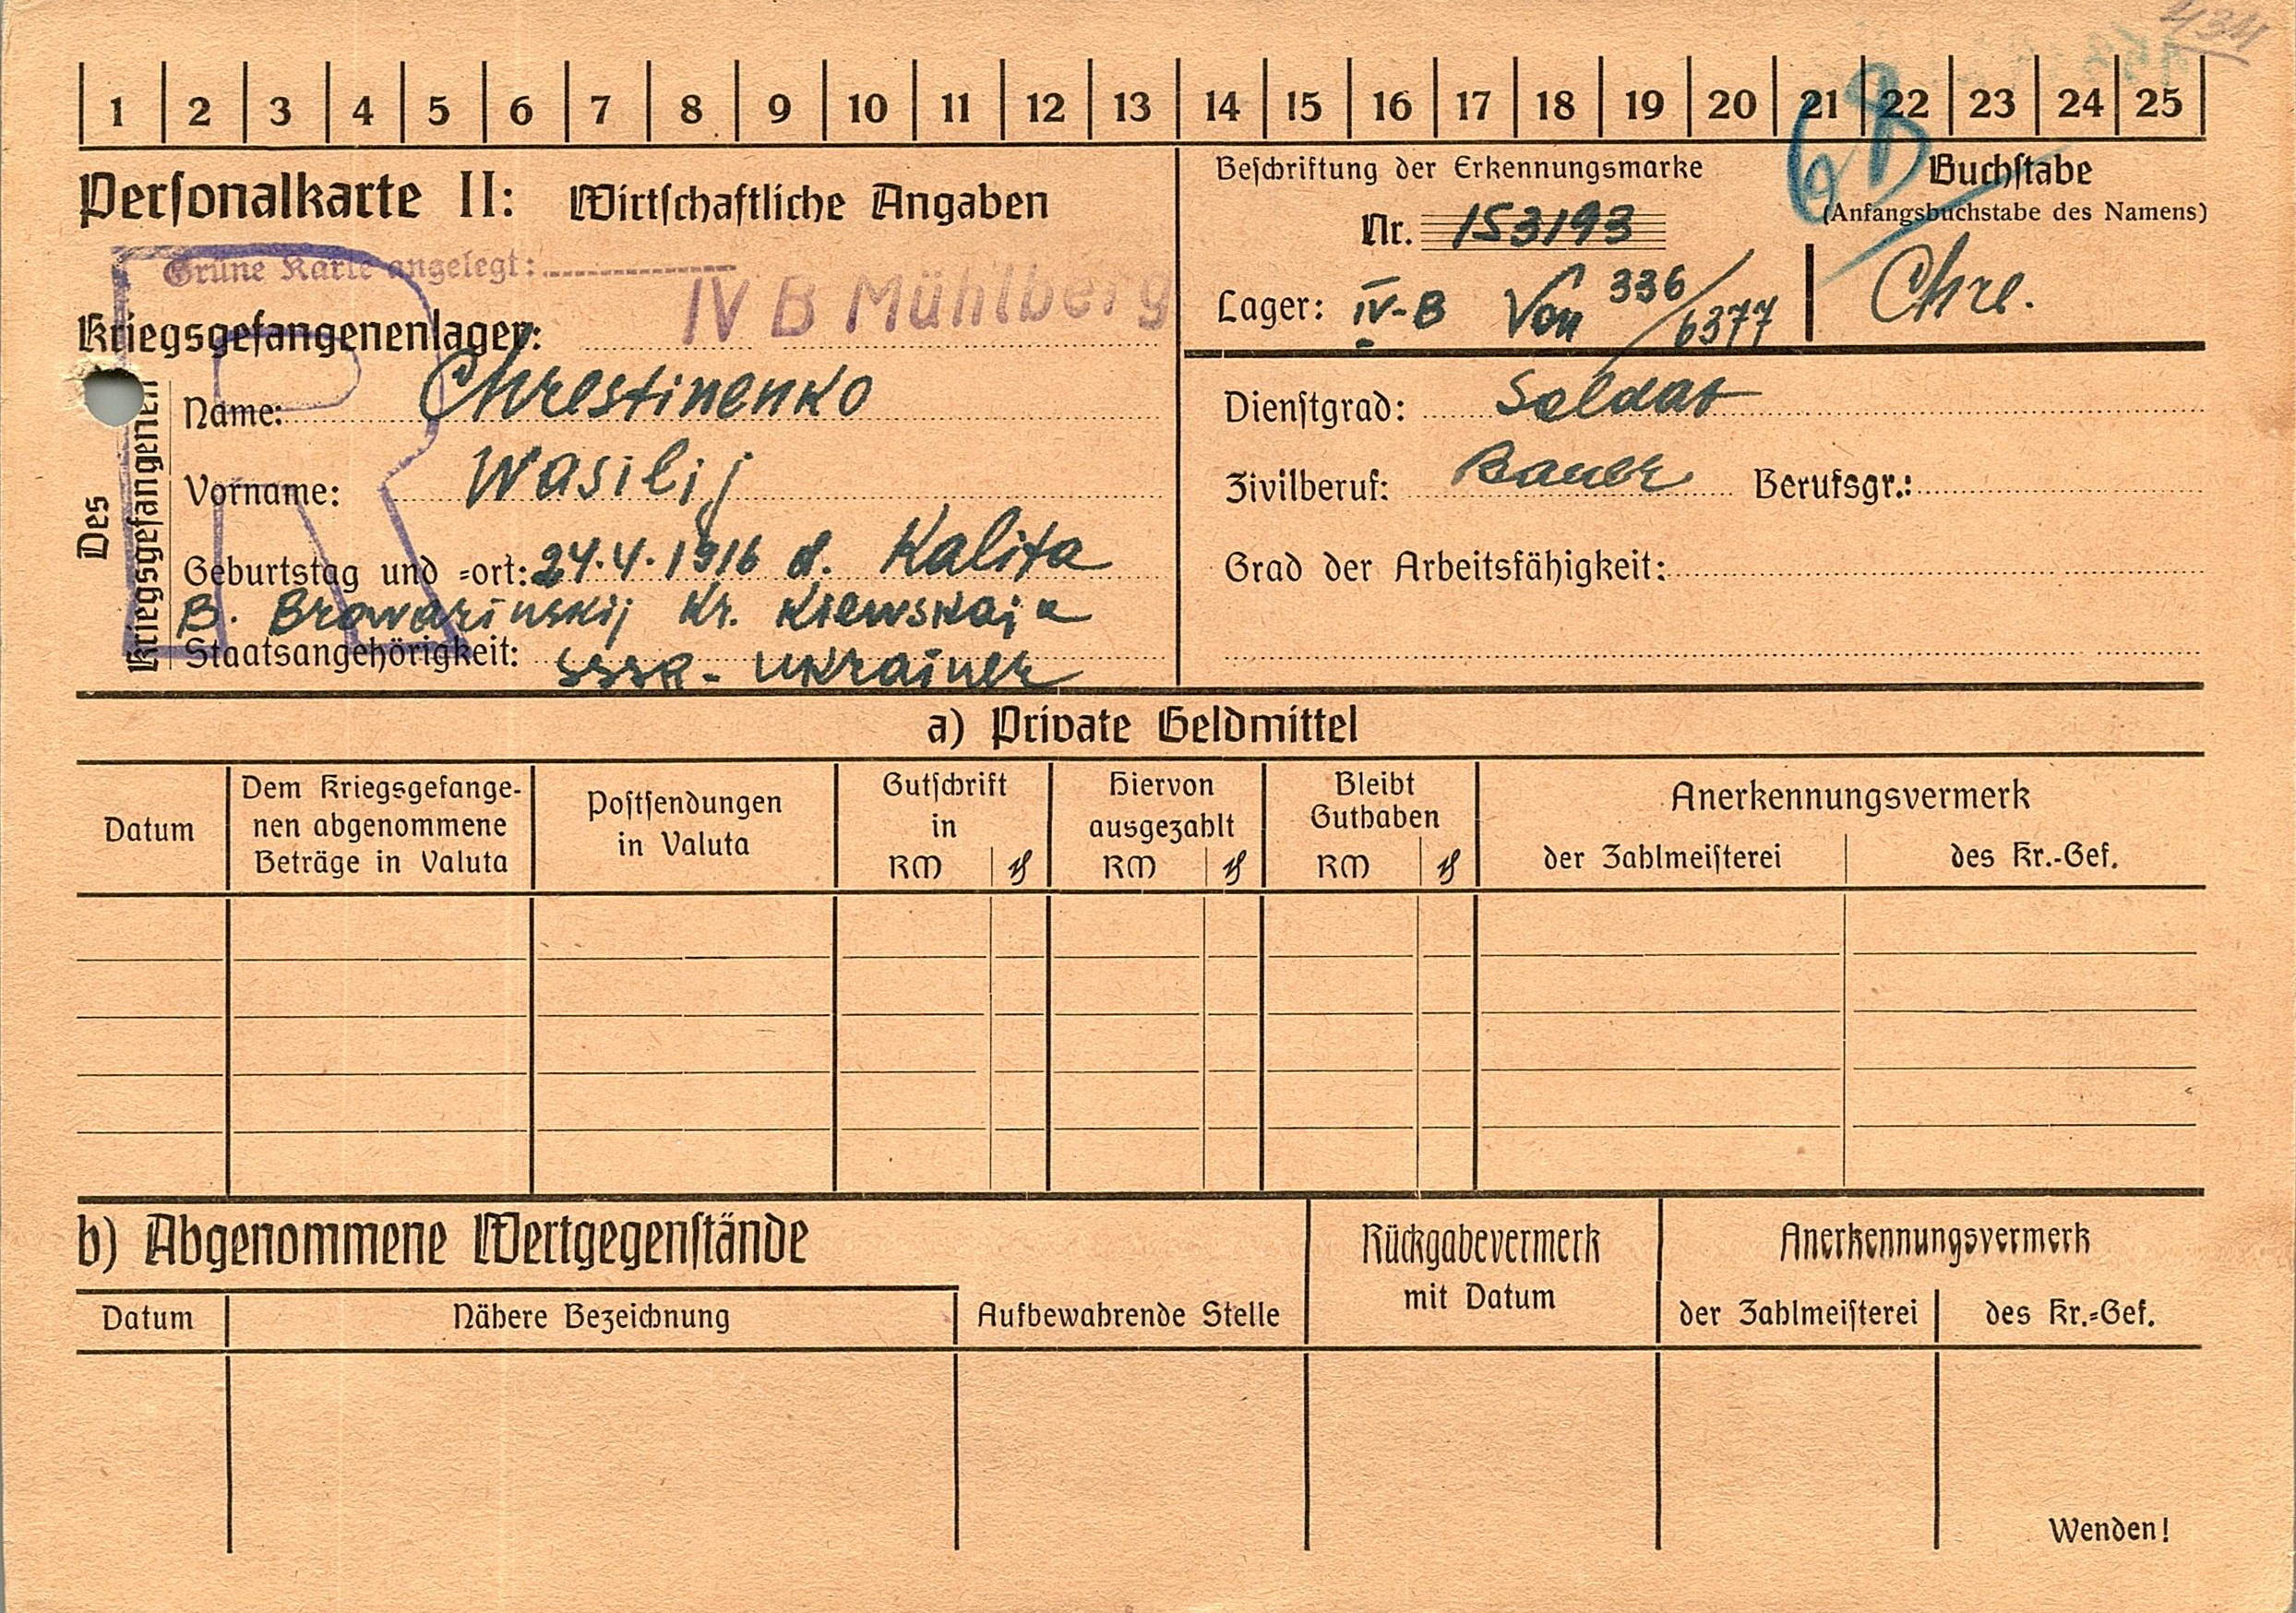 1 2 3 4 5 6 7 8 9 10 11 12 13 14 15 16 17 18 19 20 21 22 23 24 25
Personalkarte II: Wirtschaftliche Angaben
Beschriftung der Erkennungsmarke
Nr. 153193
Lager: IV-B Von 336/6377
6B
Buchstabe
(Anfangsbuchstabe des Namens)
Chre.
Grüne Karte angelegt:
Kriegsgefangenenlager: IV B Mühlberg
R
Des Kriegsgefangenen
Name: Chrestinenko
Vorname: Wasilij
Geburtstag und =ort: 24.4.1916 d. Kalita
B. Browarinskij Kr. Kiewskaja
Staatsangehörigkeit: SSSR - Ukrainer
Dienstgrad: Soldat
Zivilberuf: Bauer Berufsgr.:
Grad der Arbeitsfähigkeit:
a) Private Geldmittel
Datum
Dem Kriegsgefange-
nen abgenommene
Beträge in Valuta
Postsendungen
in Valuta
Gutschrift
in
RM ₰
Hiervon
ausgezahlt
RM ₰
Bleibt
Guthaben
RM ₰
Anerkennungsvermerk
der Zahlmeisterei des Kr.-Gef.
b) Abgenommene Wertgegenstände
Datum Nähere Bezeichnung Aufbewahrende Stelle
Rückgabevermerk
mit Datum
Anerkennungsvermerk
der Zahlmeisterei des Kr.=Gef.
Wenden!